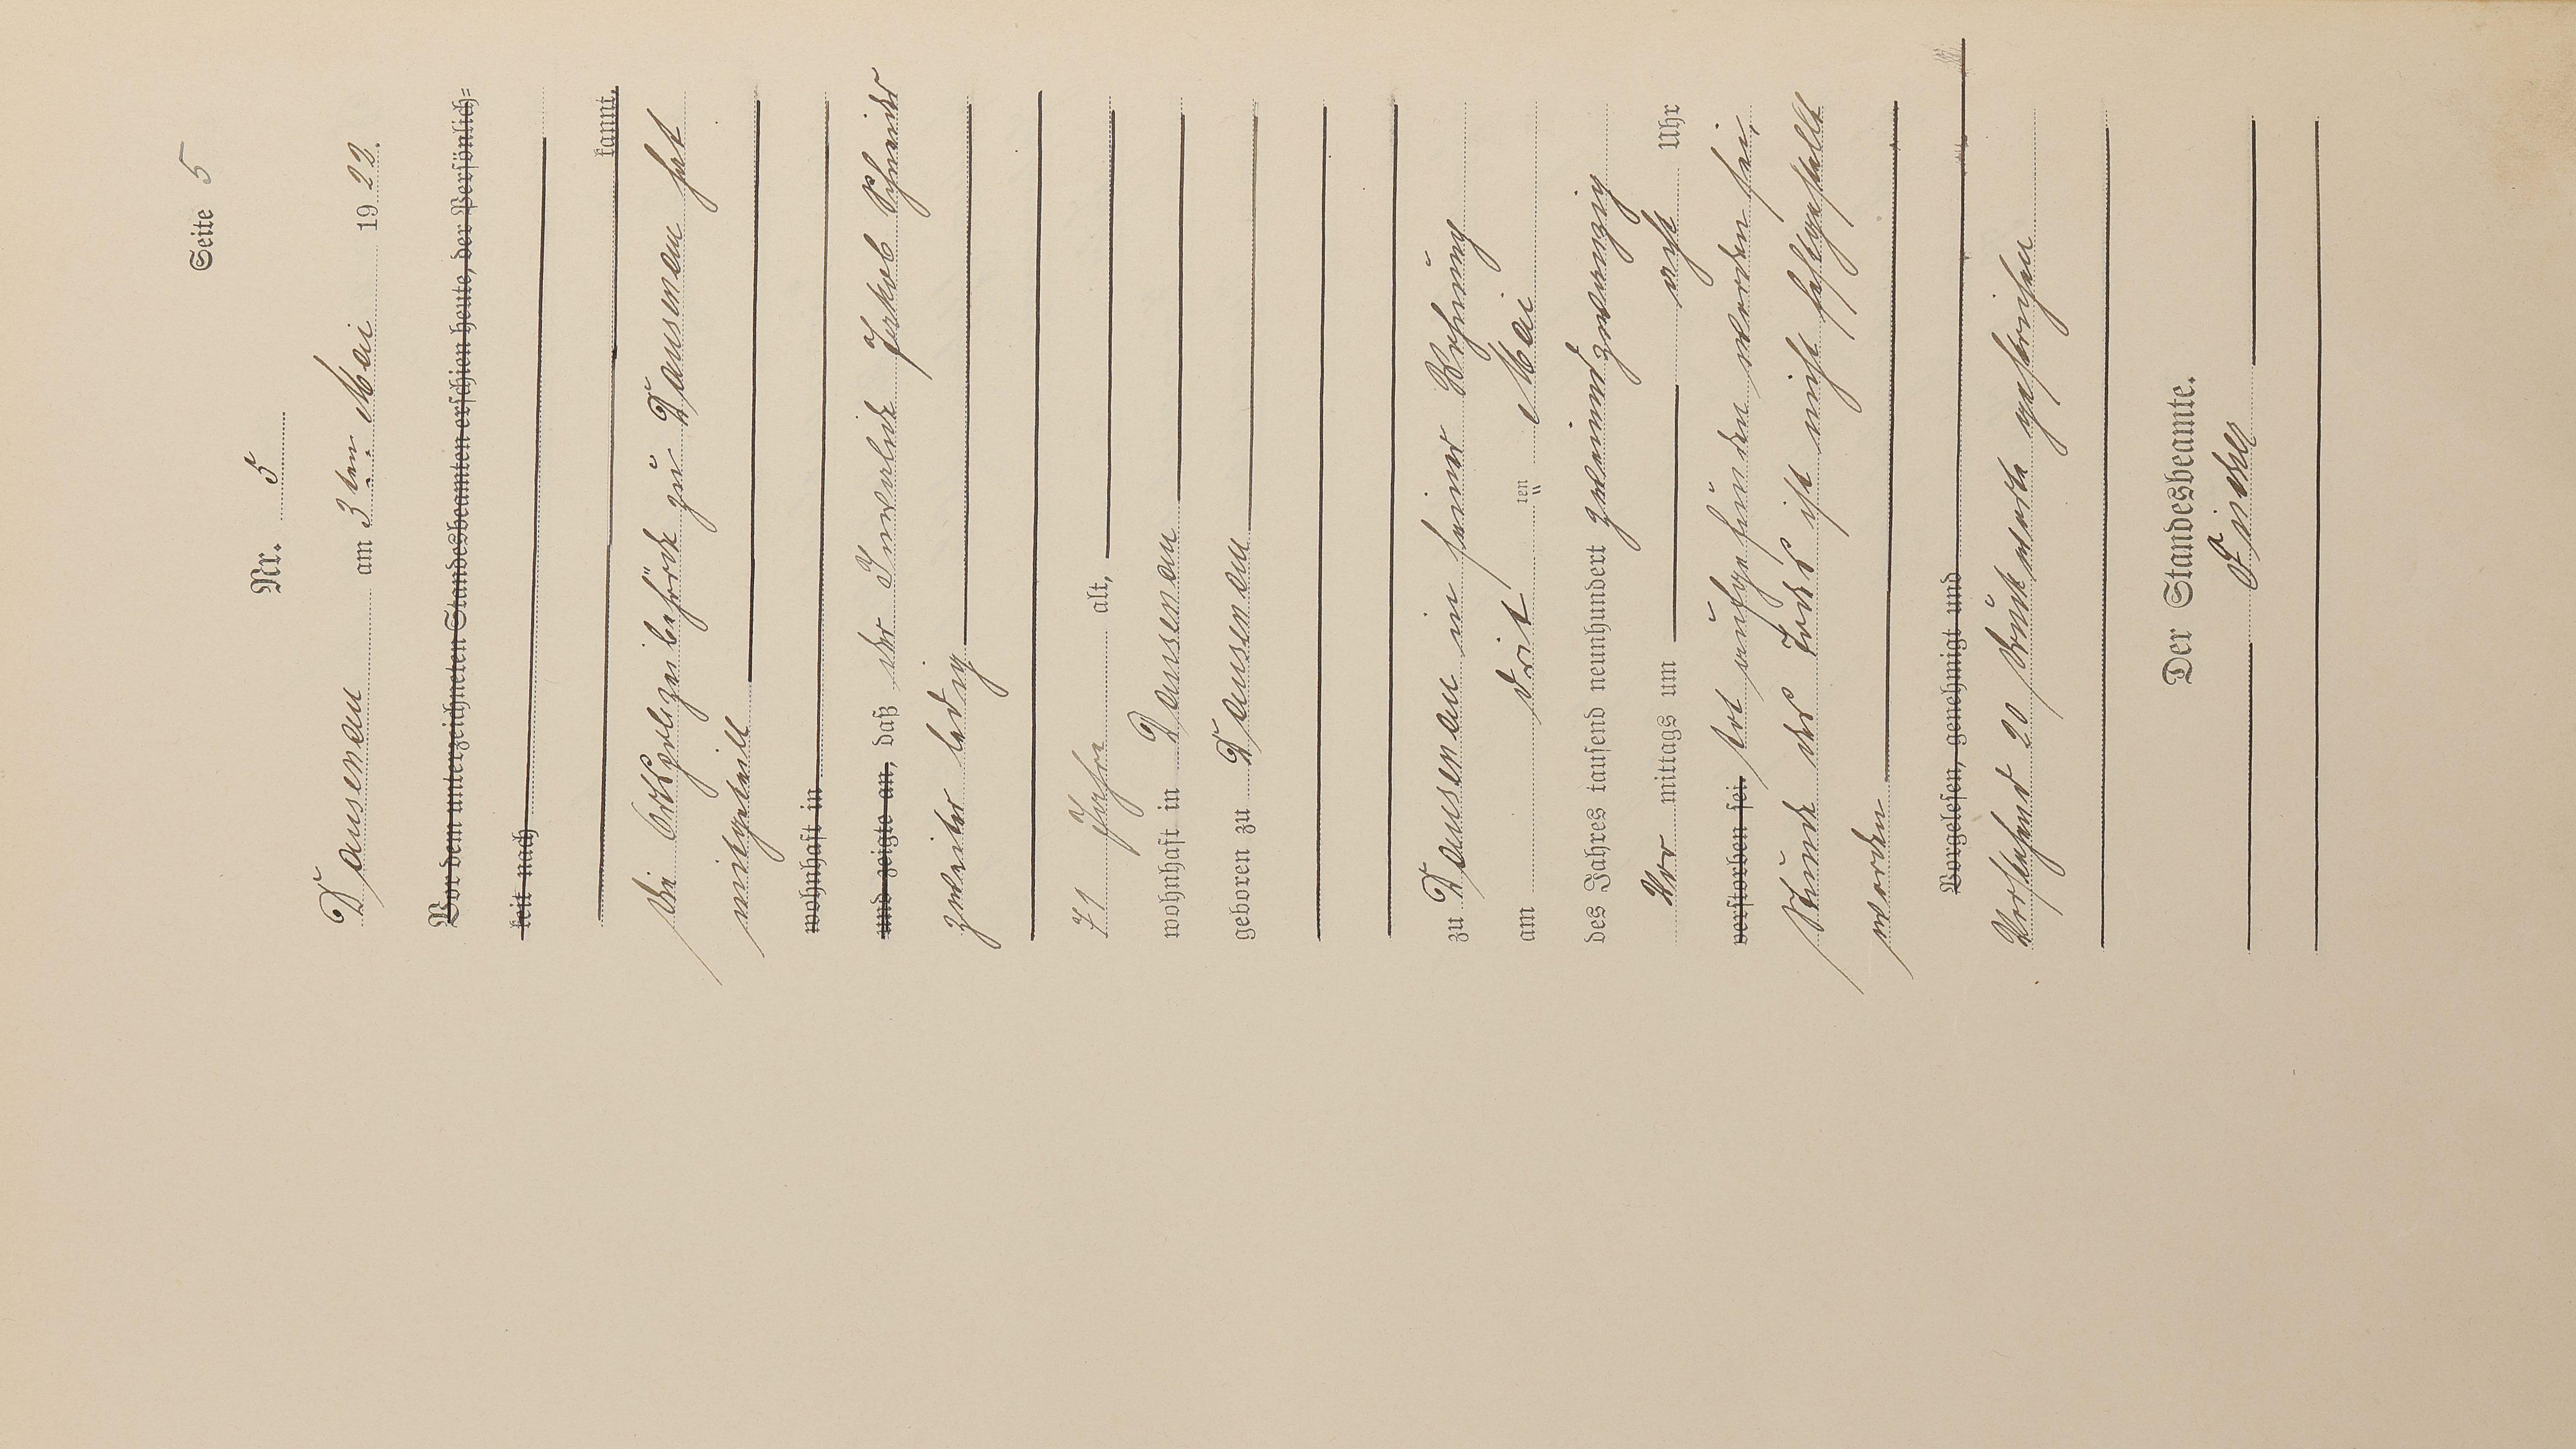 Seite 5
Nr. 5
Dausenau am 3ten Mai 1922.
Vor dem unterzeichneten Standesbeamten erschien heute, der Persönlich=
keit nach
kannt,
die Ortspolizeibehörde zu Dausenau hat
mitgeteilt
wohnhaft in
und zeigte an, daß der Invalide Jakob Schneider
zweiter ledig
71 Jahre alt,
wohnhaft in Dausenau
geboren zu Dausenau
zu Dausenau in seiner Wohnung
am drit ten Mai
des Jahres tausend neunhundert zweiundzwanzig
Vor mittags um acht Uhr
verstorben sei. tot aufgefunden worden sei,
Stunde des Todes ist nicht festgestellt
worden
Vorgelesen, genehmigt und
Vorstehend 20 Druckworte gestrichen
Der Standesbeamte.